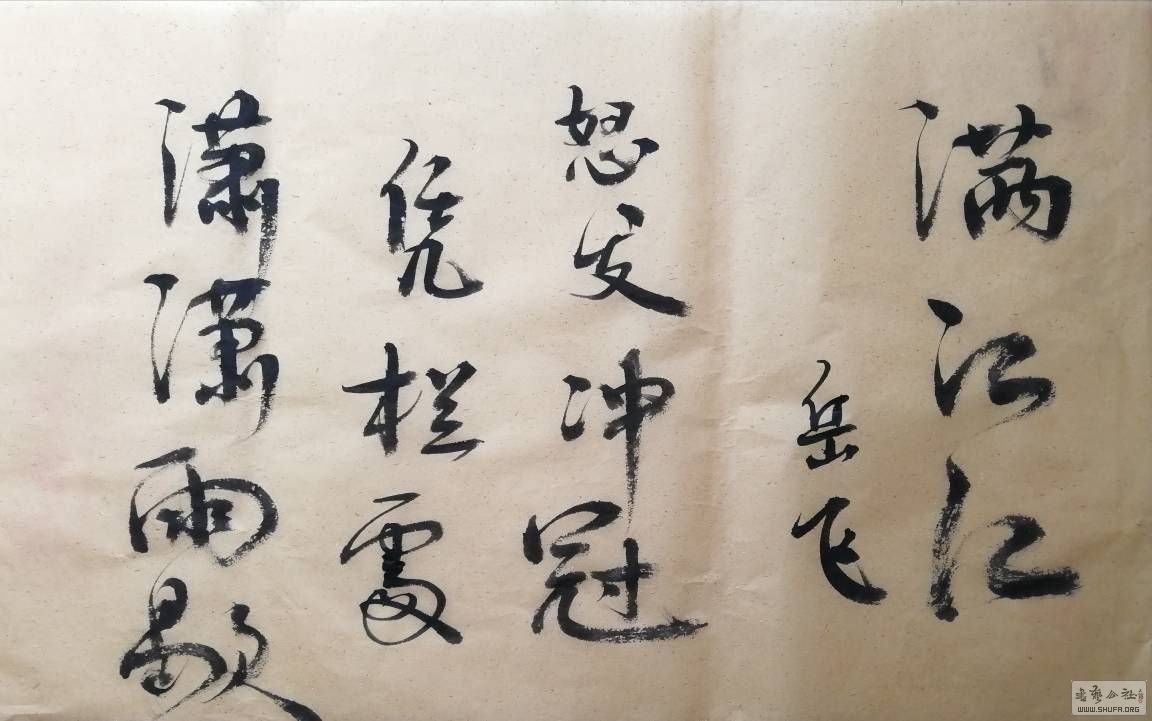 满江红
岳飞
怒发冲冠
凭栏處
潇潇雨歇
書藝公社
WWW.SHUFA.ORG